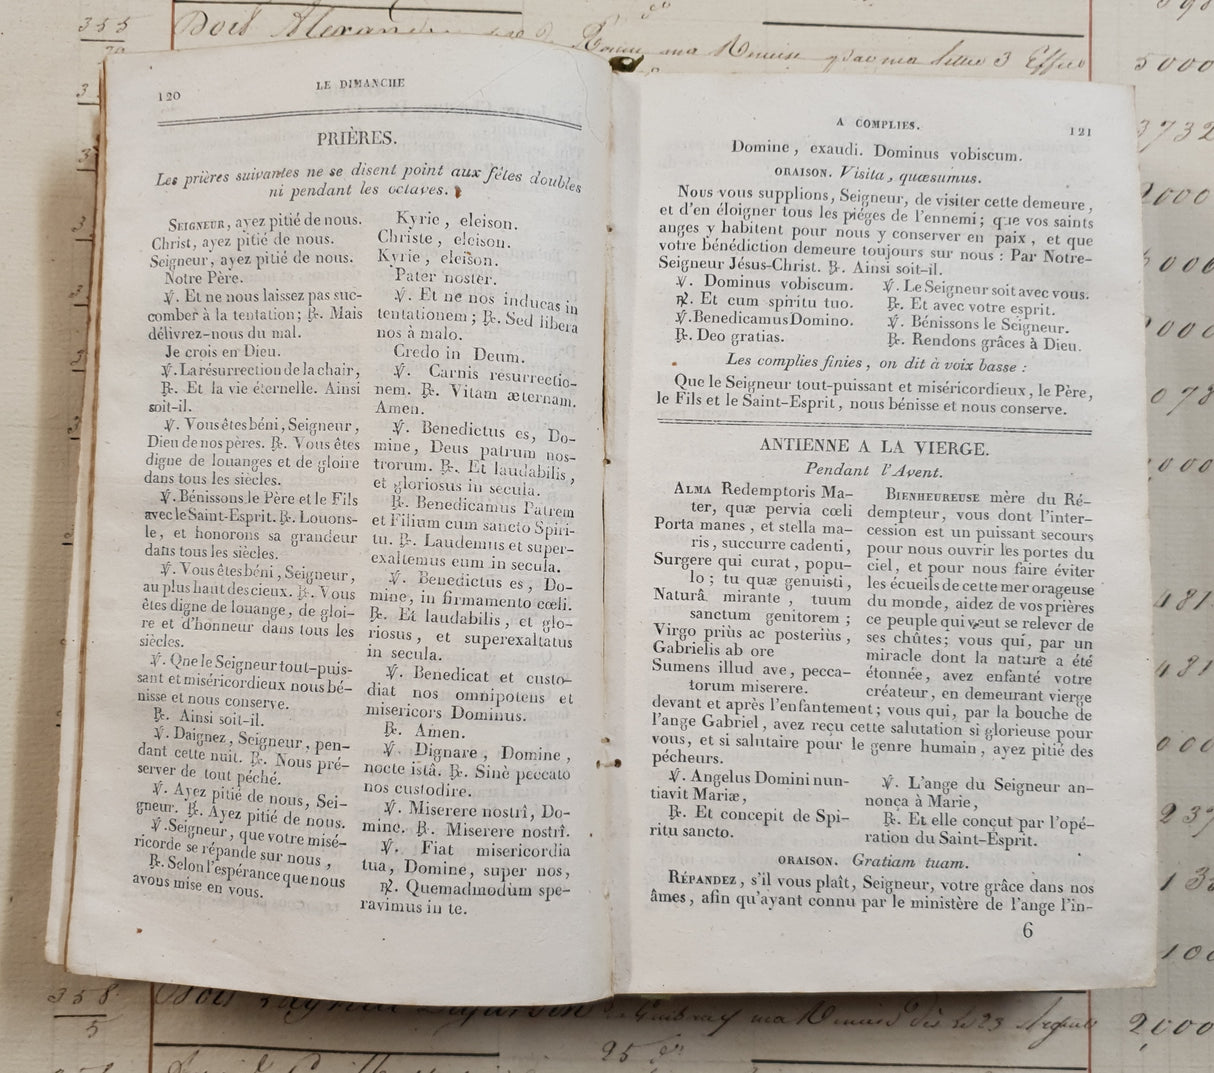 120
LE DIMANCHE
PRIÈRES.
Les prières suivantes ne se disent point aux fêtes doubles
ni pendant les octaves.
SEIGNEUR, ayez pitié de nous.
Christ, ayez pitié de nous.
Seigneur, ayez pitié de nous.
Notre Père.
℣. Et ne nous laissez pas suc-
comber à la tentation; ℟. Mais
délivrez-nous du mal.
Je crois en Dieu.
℣. La résurrection de la chair,
℟. Et la vie éternelle. Ainsi
soit-il.
℣. Vous êtes béni, Seigneur,
Dieu de nos pères. ℟. Vous êtes
digne de louanges et de gloire
dans tous les siècles.
℣. Bénissons le Père et le Fils
avec le Saint-Esprit. ℟. Louons-
le, et honorons sa grandeur
dans tous les siècles.
℣. Vous êtes béni, Seigneur,
au plus haut des cieux. ℟. Vous
êtes digne de louange, de gloi-
re et d'honneur dans tous les
siècles.
℣. Que le Seigneur tout-puis-
sant et miséricordieux nous bé-
nisse et nous conserve.
℟. Ainsi soit-il.
℣. Daignez, Seigneur, pen-
dant cette nuit. ℟. Nous pré-
server de tout péché.
℣. Ayez pitié de nous, Sei-
gneur. ℟. Ayez pitié de nous.
℣. Seigneur, que votre misé-
ricorde se répande sur nous,
℟. Selon l'espérance que nous
avons mise en vous.
Kyrie, eleison.
Christe, eleison.
Kyrie, eleison.
Pater noster.
℣. Et ne nos inducas in
tentationem; ℟. Sed libera
nos à malo.
Credo in Deum.
℣. Carnis resurrectio-
nem. ℟. Vitam æternam.
Amen.
℣. Benedictus es, Do-
mine, Deus patrum nos-
trorum. ℟. Et laudabilis,
et gloriosus in secula.
℟. Benedicamus Patrem
et Filium cum sancto Spiri-
tu. ℟. Laudemus et super-
exaltemus eum in secula.
℣. Benedictus es, Do-
mine, in firmamento cœli.
℟. Et laudabilis, et glo-
riosus, et superexaltatus
in secula.
℣. Benedicat et custo-
diat nos omnipotens et
misericors Dominus.
℟. Amen.
℣. Dignare, Domine,
nocte istâ. ℟. Sinè peccato
nos custodire.
℣. Miserere nostrî, Do-
mine. ℟. Miserere nostrî.
℣. Fiat misericordia
tua, Domine, super nos,
℟. Quemadmodùm spe-
ravimus in te.
A COMPLIES.
121
Domine, exaudi. Dominus vobiscum.
ORAISON. Visita, quæsumus.
Nous vous supplions, Seigneur, de visiter cette demeure,
et d'en éloigner tous les piéges de l'ennemi; que vos saints
anges y habitent pour nous y conserver en paix, et que
votre bénédiction demeure toujours sur nous: Par Notre-
Seigneur Jésus-Christ. ℟. Ainsi soit-il.
℣. Dominus vobiscum.
℟. Et cum spiritu tuo.
℣. Benedicamus Domino.
℟. Deo gratias.
℣. Le Seigneur soit avec vous.
℟. Et avec votre esprit.
℣. Bénissons le Seigneur.
℟. Rendons grâces à Dieu.
Les complies finies, on dit à voix basse:
Que le Seigneur tout-puissant et miséricordieux, le Père,
le Fils et le Saint-Esprit, nous bénisse et nous conserve.
ANTIENNE A LA VIERGE.
Pendant l'Avent.
ALMA Redemptoris Ma-
ter, quæ pervia cœli
Porta manes, et stella ma-
ris, succurre cadenti,
Surgere qui curat, popu-
lo; tu quæ genuisti,
Naturâ mirante, tuum
sanctum genitorem;
Virgo priùs ac posteriùs,
Gabrielis ab ore
Sumens illud ave, pecca-
torum miserere.
BIENHEUREUSE mère du Ré-
dempteur, vous dont l'inter-
cession est un puissant secours
pour nous ouvrir les portes du
ciel, et pour nous faire éviter
les écueils de cette mer orageuse
du monde, aidez de vos prières
ce peuple qui veut se relever de
ses chûtes; vous qui, par un
miracle dont la nature a été
étonnée, avez enfanté votre
créateur, en demeurant vierge
devant et après l'enfantement; vous qui, par la bouche de
l'ange Gabriel, avez reçu cette salutation si glorieuse pour
vous, et si salutaire pour le genre humain, ayez pitié des
pécheurs.
℣. Angelus Domini nun-
tiavit Mariæ,
℟. Et concepit de Spi-
ritu sancto.
℣. L'ange du Seigneur an-
nonça à Marie,
℟. Et elle conçut par l'opé-
ration du Saint-Esprit.
ORAISON. Gratiam tuam.
RÉPANDEZ, s'il vous plaît, Seigneur, votre grâce dans nos
âmes, afin qu'ayant connu par le ministère de l'ange l'in-
6
355
Doit
5000
3732
358
5
2,000